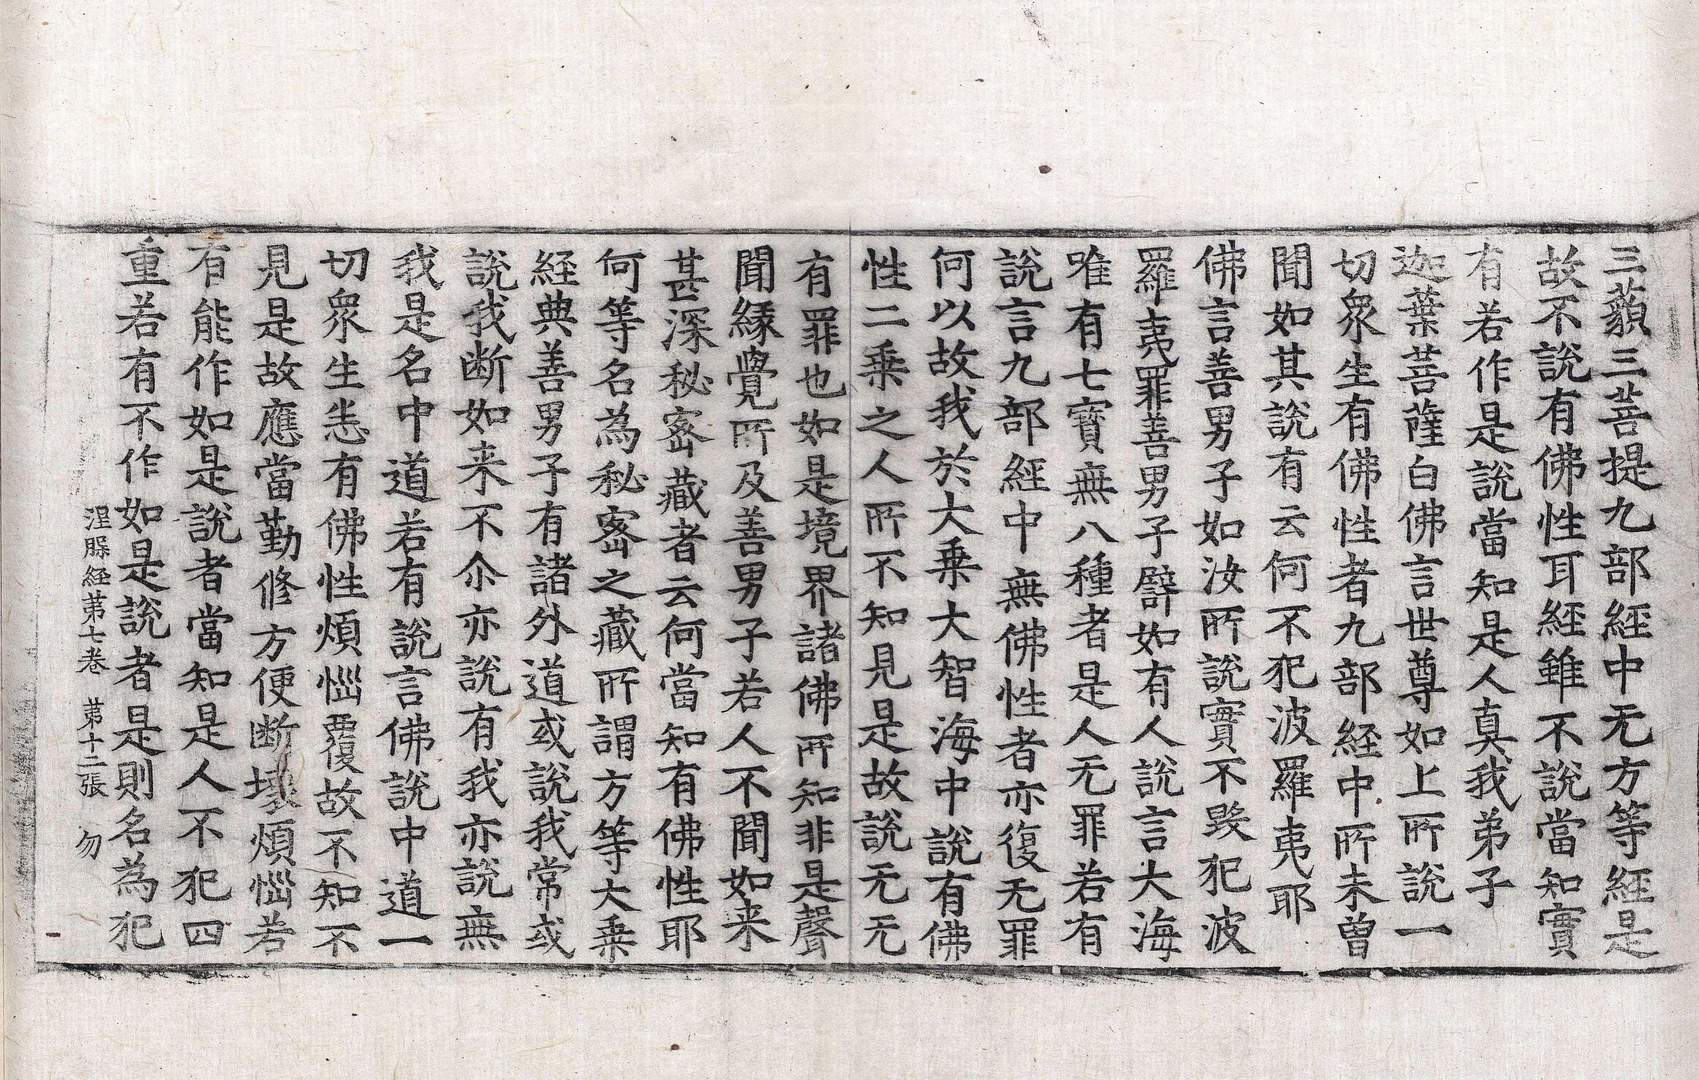 三藐三菩提九部經中无方等經是
故不說有佛性耳經雖不說當知實
有若作是說當知是人真我弟子
迦葉菩薩白佛言世尊如上所說一
切衆生有佛性者九部經中所未曾
聞如其說有云何不犯波羅夷耶
佛言善男子如汝所說實不毀犯波
羅夷罪善男子譬如有人說言大海
唯有七寶無八種者是人无罪若有
說言九部經中無佛性者亦復无罪
何以故我於大乗大智海中說有佛
性二乗之人所不知見是故說无无
有罪也如是境界諸佛所知非是聲
聞緣覺所及善男子若人不聞如来
甚深秘密藏者云何當知有佛性耶
何等名為秘密之藏所謂方等大乗
経典善男子有諸外道或說我常或
說我断如来不尒亦說有我亦說無
我是名中道若有說言佛說中道一
切衆生悉有佛性煩惱覆故不知不
見是故應當勤修方便断壞煩惱若
有能作如是說者當知是人不犯四
重若有不作如是說者是則名為犯
涅槃経第七卷 第十二張 勿